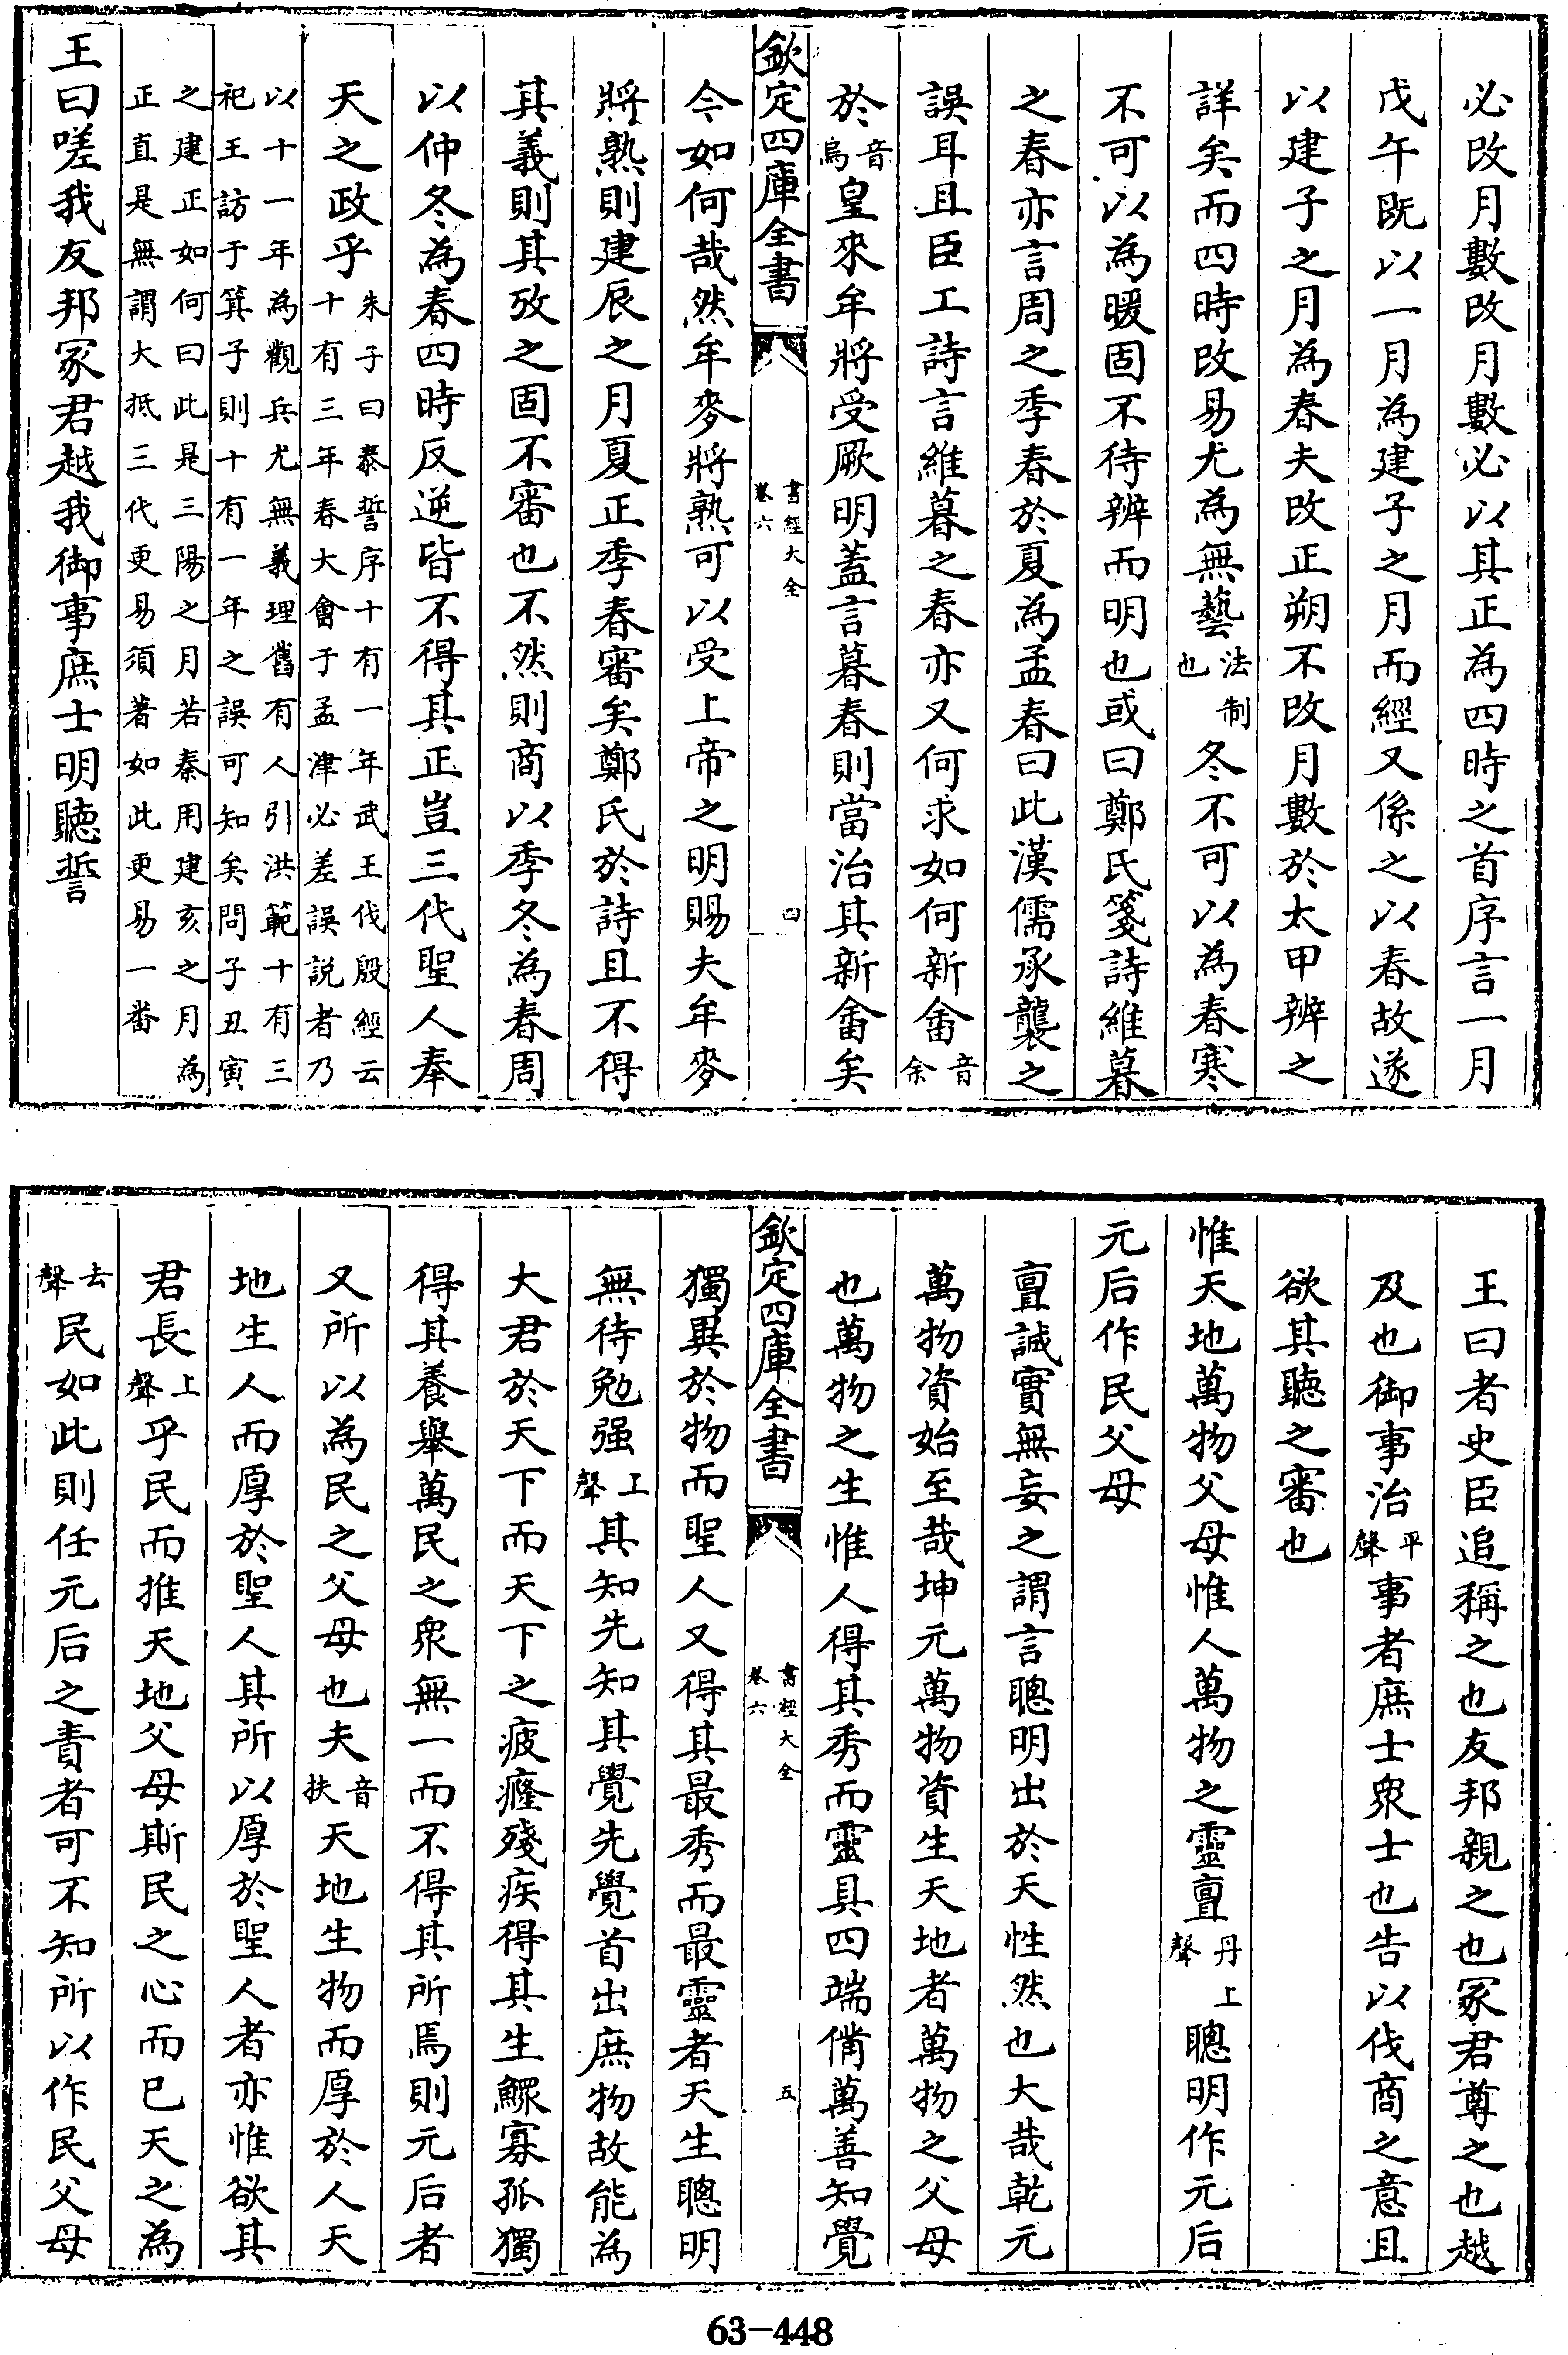 必改月數改月數必以其正為四時之首序言一月
戊午既以一月為建子之月而經又係之以春故遂
以建子之月為春夫改正朔不改月數於太甲辨之
詳矣而四時改易尤為無藝法制也冬不可以為春寒
不可以為暖固不待辨而明也或曰鄭氏箋詩維暮
之春亦言周之季春於夏為孟春曰此漢儒承襲之
誤耳且臣工詩言維暮之春亦又何求如何新畬音余
於音烏皇來牟將受厥明蓋言暮春則當治其新畬矣
欽定四庫全書
書經大全
卷六
四
今如何哉然牟麥將熟可以受上帝之明賜夫牟麥
將熟則建辰之月夏正季春審矣鄭氏於詩且不得
其義則其攷之固不審也不然則商以季冬為春周
以仲冬為春四時反逆皆不得其正豈三代聖人奉
天之政乎朱子曰泰誓序十有一年武王伐殷經云
十有三年春大會于孟津必差誤説者乃
以十一年為觀兵尤無義理舊有人引洪範十有三
祀王訪于箕子則十有一年之誤可知矣問子丑寅
之建正如何曰此是三陽之月若秦用建亥之月為
正直是無謂大抵三代更易須著如此更易一番
王曰嗟我友邦冢君越我御事庶士明聽誓
王曰者史臣追稱之也友邦親之也冢君尊之也越
及也御事治平聲事者庶士衆士也告以伐商之意且
欲其聽之審也
惟天地萬物父母惟人萬物之靈亶丹上聲聰明作元后
元后作民父母
亶誠實無妄之謂言聰明出於天性然也大哉乾元
萬物資始至哉坤元萬物資生天地者萬物之父母
也萬物之生惟人得其秀而靈具四端備萬善知覺
欽定四庫全書
書經大全
卷六
五
獨異於物而聖人又得其最秀而最靈者天生聰明
無待勉强上聲其知先知其覺先覺首出庶物故能為
大君於天下而天下之疲癃殘疾得其生鰥寡孤獨
得其養舉萬民之衆無一而不得其所焉則元后者
又所以為民之父母也夫音扶天地生物而厚於人天
地生人而厚於聖人其所以厚於聖人者亦惟欲其
君長上聲乎民而推天地父母斯民之心而已天之為
去聲民如此則任元后之責者可不知所以作民父母
63-448